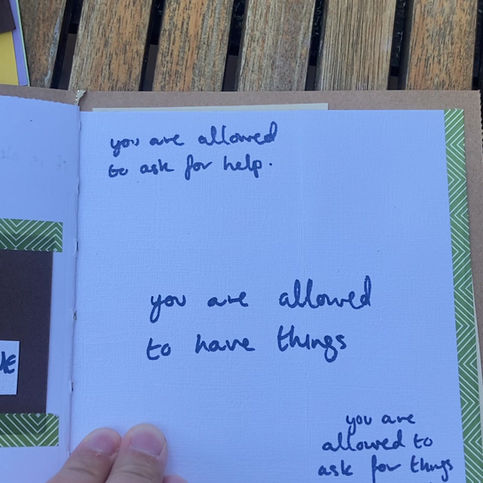 you are allowed
to ask for help.
you are allowed
to have things
you are
allowed to
ask for things